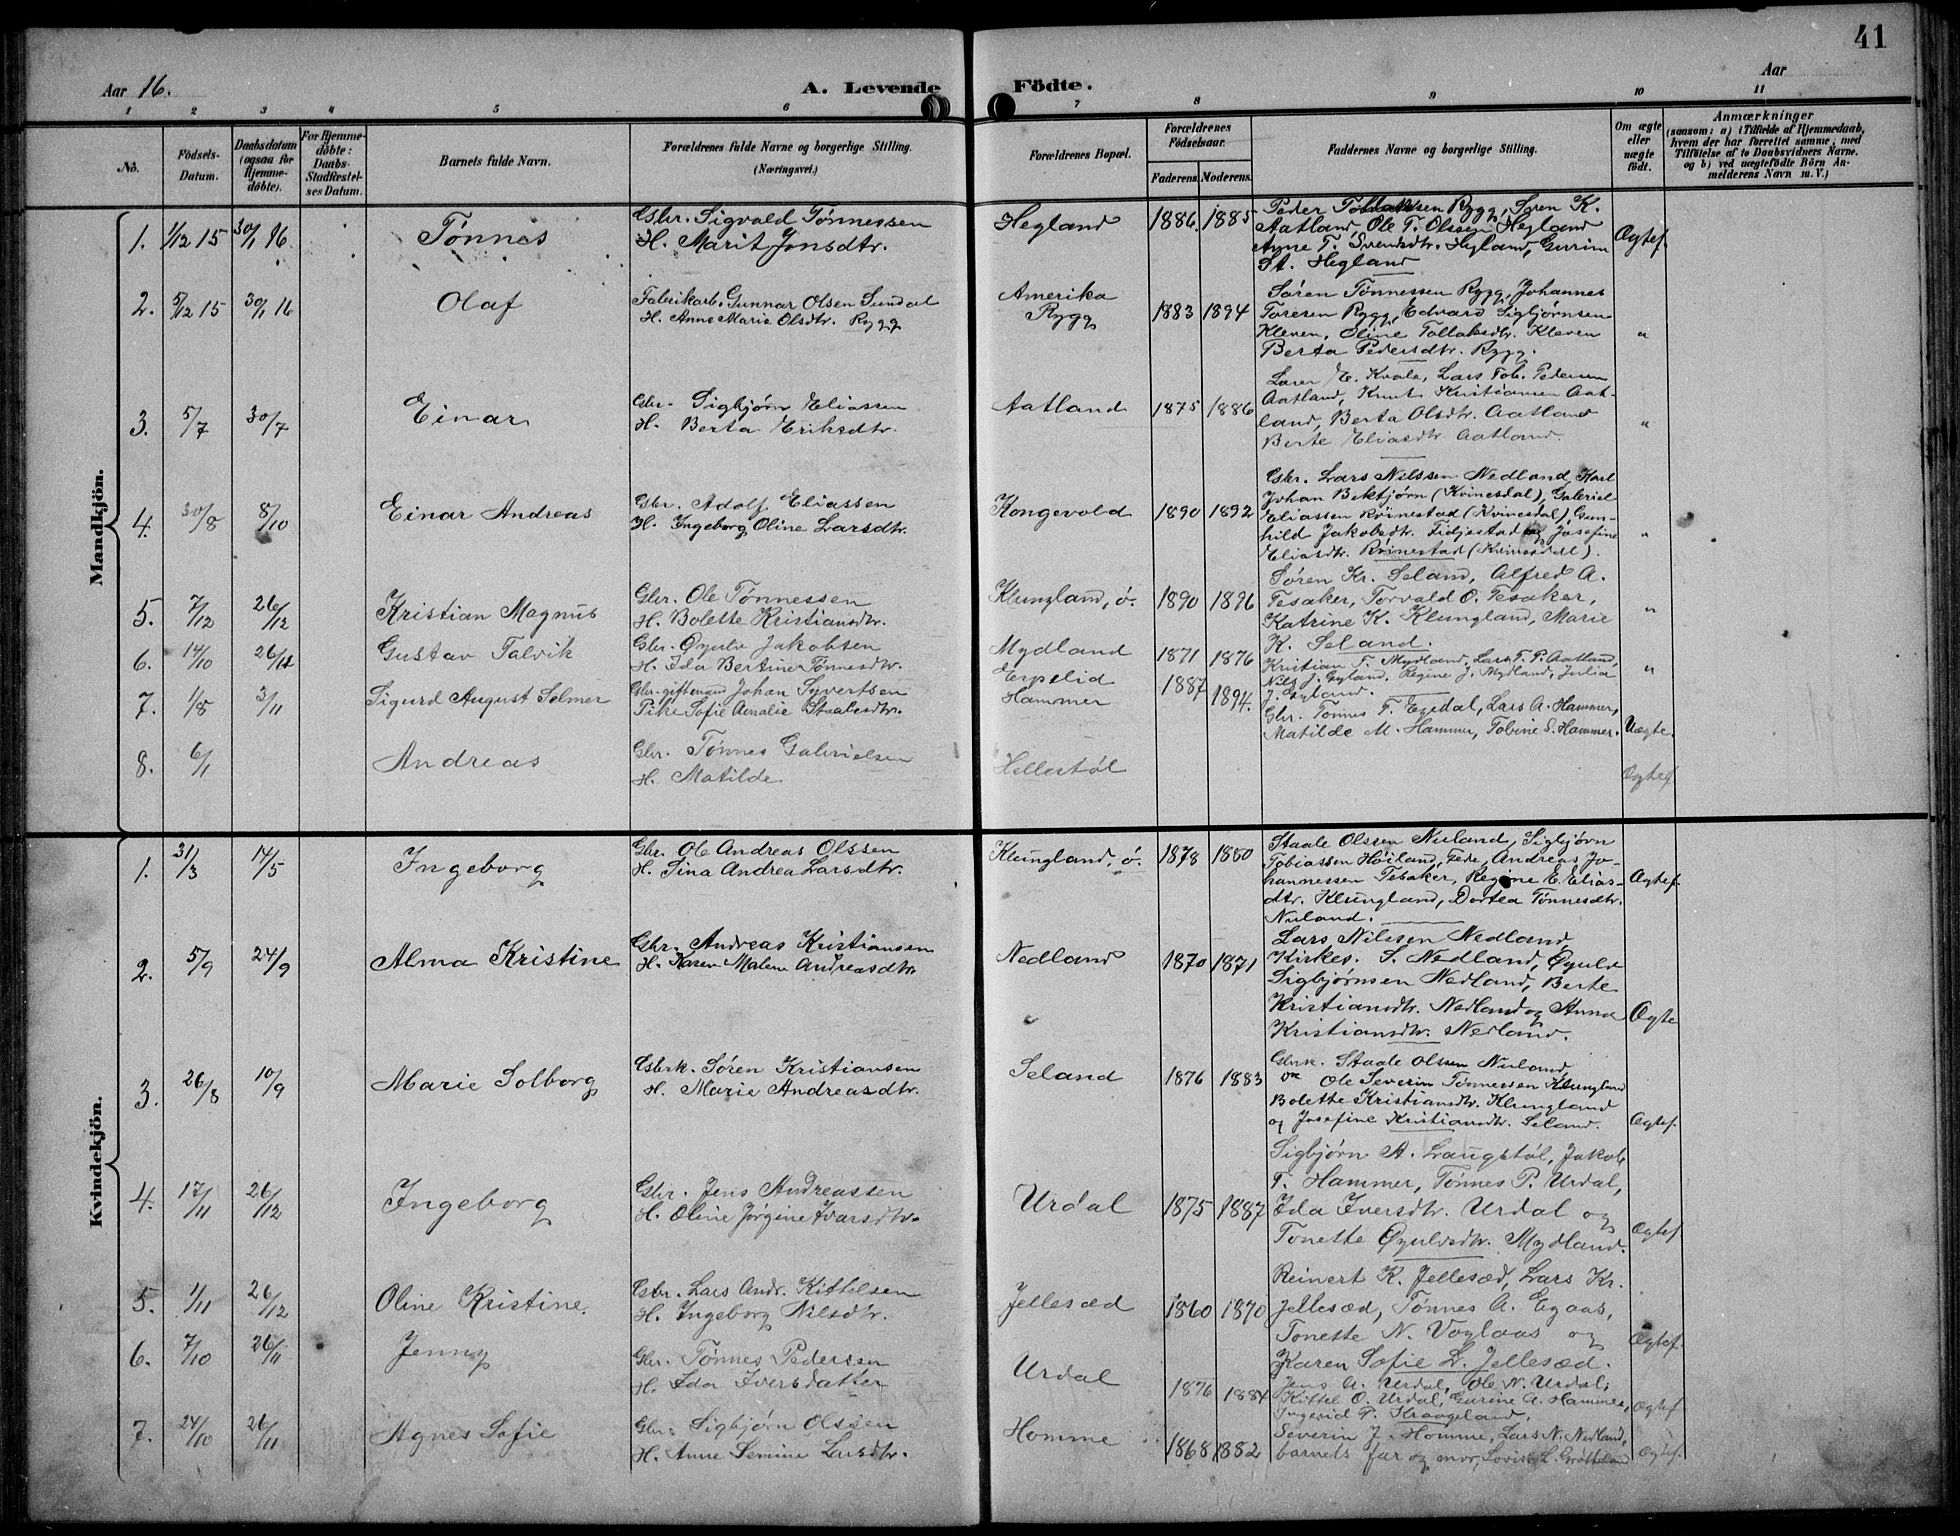 41
Aar 16.
A. Levende Födte.
Aar
1 2 3 4 5 6 7 8 9 10 11
No.
Födsels-
Datum.
Daabsdatum
(ogsaa for
Hjemme-
döbte).
For Hjemme-
döbte:
Daabs-
Stadfestel-
ses Datum.
Barnets fulde Navn.
Forældrenes fulde Navne og borgerlige Stilling.
(Næringsvei.)
Forældrenes Bopæl.
Forældrenes
Födselsaar.
Faderens. Moderens.
Faddernes Navne og borgerlige Stilling.
Om ægte
eller
uægte
födt.
Anmærkninger
(saasom: a) i Tilfælde af Hjemmedaab,
hvem der har forrettet samme, med
Tilföielse af to Daabsvidners Navne,
og b) ved uægtefödte Börn An-
melderens Navn m. V.)
Mandkjön.
1. 1/12 15 30/1 16 Tønnes
Gbr. Sigvald Tønnessen
H. Marit Jonsdtr.
Hegland 1886. 1885
Peder Tollaksen Rygg, Søren K.
Aatland, Ole T. Olssen Hegland
Anne T. Svendsdtr. Hegland, Gurine
St. Hegland
Ægtef.
2. 5/12 15 30/1 16 Olaf
Fabrikarb. Gunnar Olsen Sundal
H. Anne Marie Olsdtr. Rygg
Amerika
Rygg
1883 1894
Søren Tønnessen Rygg, Johannes
Toresen Rygg, Edvard Sigbjørnsen
Kleven, Oline Tollaksdtr. Kleven
Berta Pedersdtr. Rygg.
"
3. 5/7 30/7 Einar
Gbr. Sigbjørn Eliassen
H. Berta Eriksdtr.
Aatland 1875 1886
E. Kvale, Lars Tob. Pedersen
Aatland, Knut Kristiansen Aat-
land, Berta Olsdtr. Aatland
Berte Eliasdtr. Aatland.
"
4. 30/8 8/10 Einar Andreas
Gbr. Adolf Eliassen
H. Ingeborg Oline Larsdtr.
Kongevold 1890 1892
Gbr. Lars Nilssen Nedland, Karl
Johan Bektjørn (Kvinesdal), Gabriel
Eliassen Røinestad (Kvinesdal), Gun-
hild Jakobsdtr. Fidjestad og Josefine
Eliasdtr. Røinestad (Kvinesdal).
"
5. 7/12 26/12 Kristian Magnus
Gbr. Ole Tønnessen
H. Bolette Kristiansdtr.
Klungland, ø. 1890 1896
Søren Kr. Seland, Alfred A.
Tesaker, Torvald O. Tesaker,
Katrine K. Klungland, Marie
K. Seland.
"
6. 14/10 26/12 Gustav Talvik
Gbr. Øyulv Jakobsen
H. Ida Bertine Tønnesdtr.
Mydland 1871 1876
Kristian F. Mydland, Lars T. P. Aatland,
Nils J. Gyland, Regine J. Mydland, Julia
J. Gyland.
"
7. 1/8 3/11 Sigurd August Selmer
Gbr. giftemand Johan Syvertsen
Pike Sofie Amalie Staalesdtr.
Erpelid
Hammer
1887 1894.
Gbr. Tønnes T. Egedal, Lars A. Hammer,
Matilde M. Hammer, Tobine S. Hammer.
Uægte.
8. 6/1 Andreas
Gbr. Tønnes Gabrielsen
H. Matilde
Hellestøl
Ægtef
Kvindekjön.
1. 31/3 14/5 Ingeborg
Gbr. Ole Andreas Olssen
H. Sina Andrea Larsdtr.
Klungland, ø. 1878 1880
Staale Olssen Nuland, Sigbjørn
Tobiassen Høiland, Fede, Andreas Jo-
hannessen Tesaker, Regine E. Elias-
dtr. Klungland, Dortea Tønnesdtr.
Nuland.
Ægtef.
2. 5/9 24/9 Alma Kristine
Gbr. Andreas Kristiansen
H. Karen Malene Andreasdtr
Nedland 1870 1871
Lars Nilssen Nedland,
Kirkes. S. Nedland, Øyulv
Sigbjørnsen Nedland, Berte
Kristiansdtr. Nedland og Anna
Kristiansdtr. Nedland.
Ægte
3. 26/8 10/9 Marie Solborg
Gbrk. Søren Kristiansen
H. Marie Andreasdtr.
Seland 1876 1883
Gbrk. Staale Olssen Nuland,
Ole Severin Tønnessen Klungland
Bolette Kristiansdtr. Klungland
og Josefine Kristiansdtr. Seland.
Ægtef.
4. 17/11 26/12 Ingeborg
Gbr. Jens Andreassen
H. Oline Jørgine Ivarsdtr.
Urdal 1875 1887
Sigbjørn A. Laugstøl, Jakob
T. Hammer, Tønnes P. Urdal,
Ida Iversdtr. Urdal og
Tonette Øyulvsdtr. Mydland.
Ægtef
5. 1/11 26/12 Oline Kristine.
Gbr. Lars Andr. Kittelsen
H. Ingeborg Nilsdtr.
Jellesæd 1860 1870
Reinert K. Jellesæd, Lars Kr.
Jellesæd, Tønnes A. Egaas,
Tonette N. Voglaas og
Karen Sofie L. Jellesæd.
Ægtef.
6. 7/10 26/11 Jenny
Gbr. Tønnes Pedersen
H. Ida Iversdatter
Urdal 1876 1884
Jens A. Urdal, Ole N. Urdal,
Kittel O. Urdal, Gurine A. Hammer,
Ingevid P. Kraageland.
Ægtef
7. 24/10 26/11 Agnes Sofie
Gbr. Sigbjørn Olssen
H. Anne Semine Larsdtr.
Homme 1868 1882
Severin J. Homme, Lars N. Nedland,
barnets far og mor, Lovise L. Grøtteland
Ægtef.